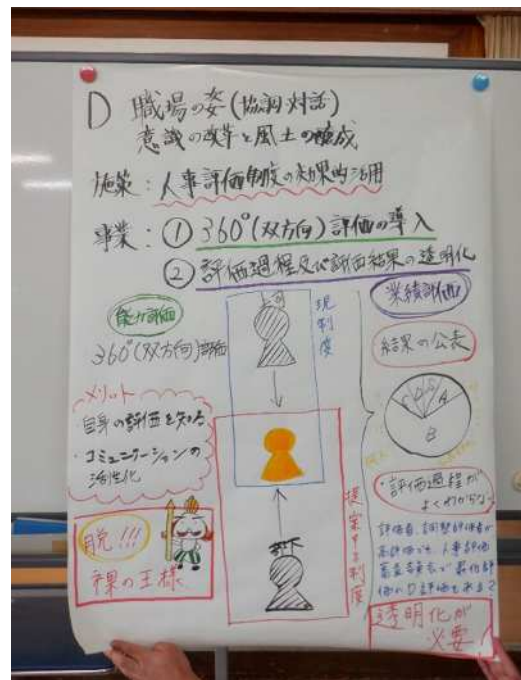 D 職場の姿(協調・対話)
意識の改革と風土の醸成
施策:人事評価制度の効果的活用
事業:① 360°(双方向)評価の導入
② 評価過程及び評価結果の透明化
能力評価
360°(双方向)評価
メリット
自身の評価を知る
・コミュニケーションの
活性化
脱!!!
裸の王様
上司
現制度
部下
提案する制度
業績評価
結果の公表
D
S
A
B
・評価過程が
よくわからない
評価者、調整評価者が
高評価でも、人事評価
審査委員会で最低評
価のD評価もある?
透明化が
必要!